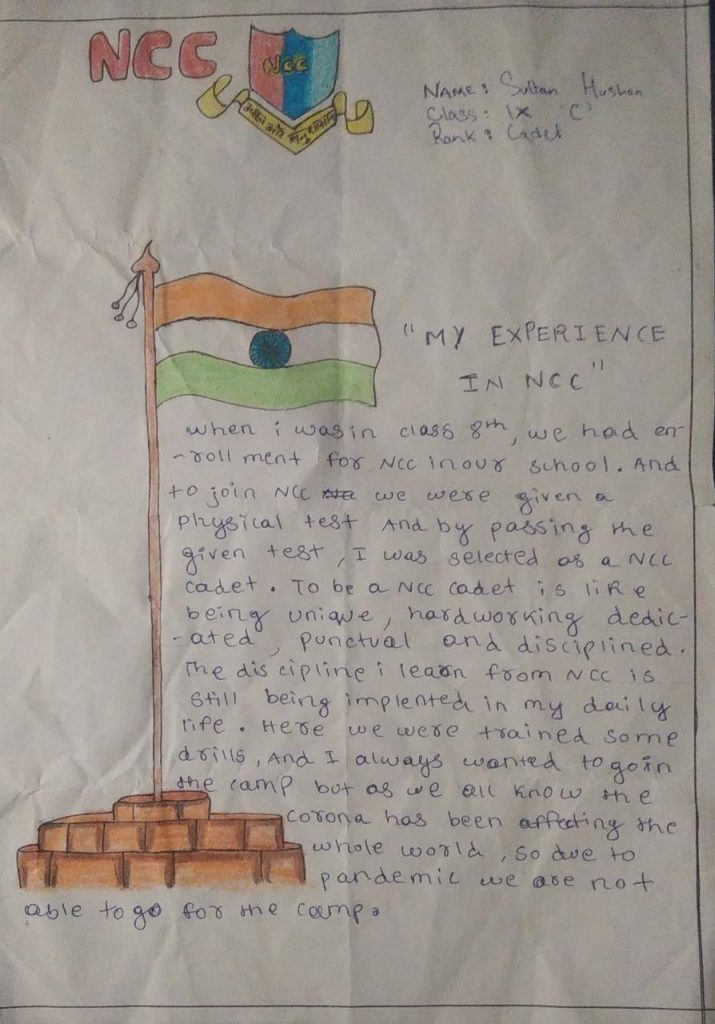 NCC
NCC
एकता और अनुशासन
Name: Sultan
Class: IX 'C'
Rank: Cadet
"MY EXPERIENCE
IN NCC"
when i was in class 8th, we had en-
-rollment for NCC in our school. And
to join NCC we were given a
physical test And by passing the
given test, I was selected as a NCC
cadet. To be a NCC cadet is like
being unique, hardworking dedic-
-ated, punctual and disciplined.
The discipline i learn from NCC is
still being implented in my daily
life. Here we were trained some
drills, And I always wanted to go in
the camp but as we all know the
corona has been affecting the
whole world, so due to
pandemic we are not
able to go for the camp.